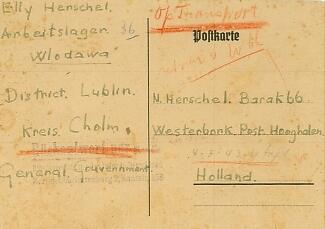 Elly Herschel.
Arbeitslager 36
Wlodawa
District. Lublin.
Kreis. Cholm.
General. Gouvernement.
Op Transport
Postkarte
N. Herschel. Barak 66
Westerbork. Post. Hooghalen.
Holland.